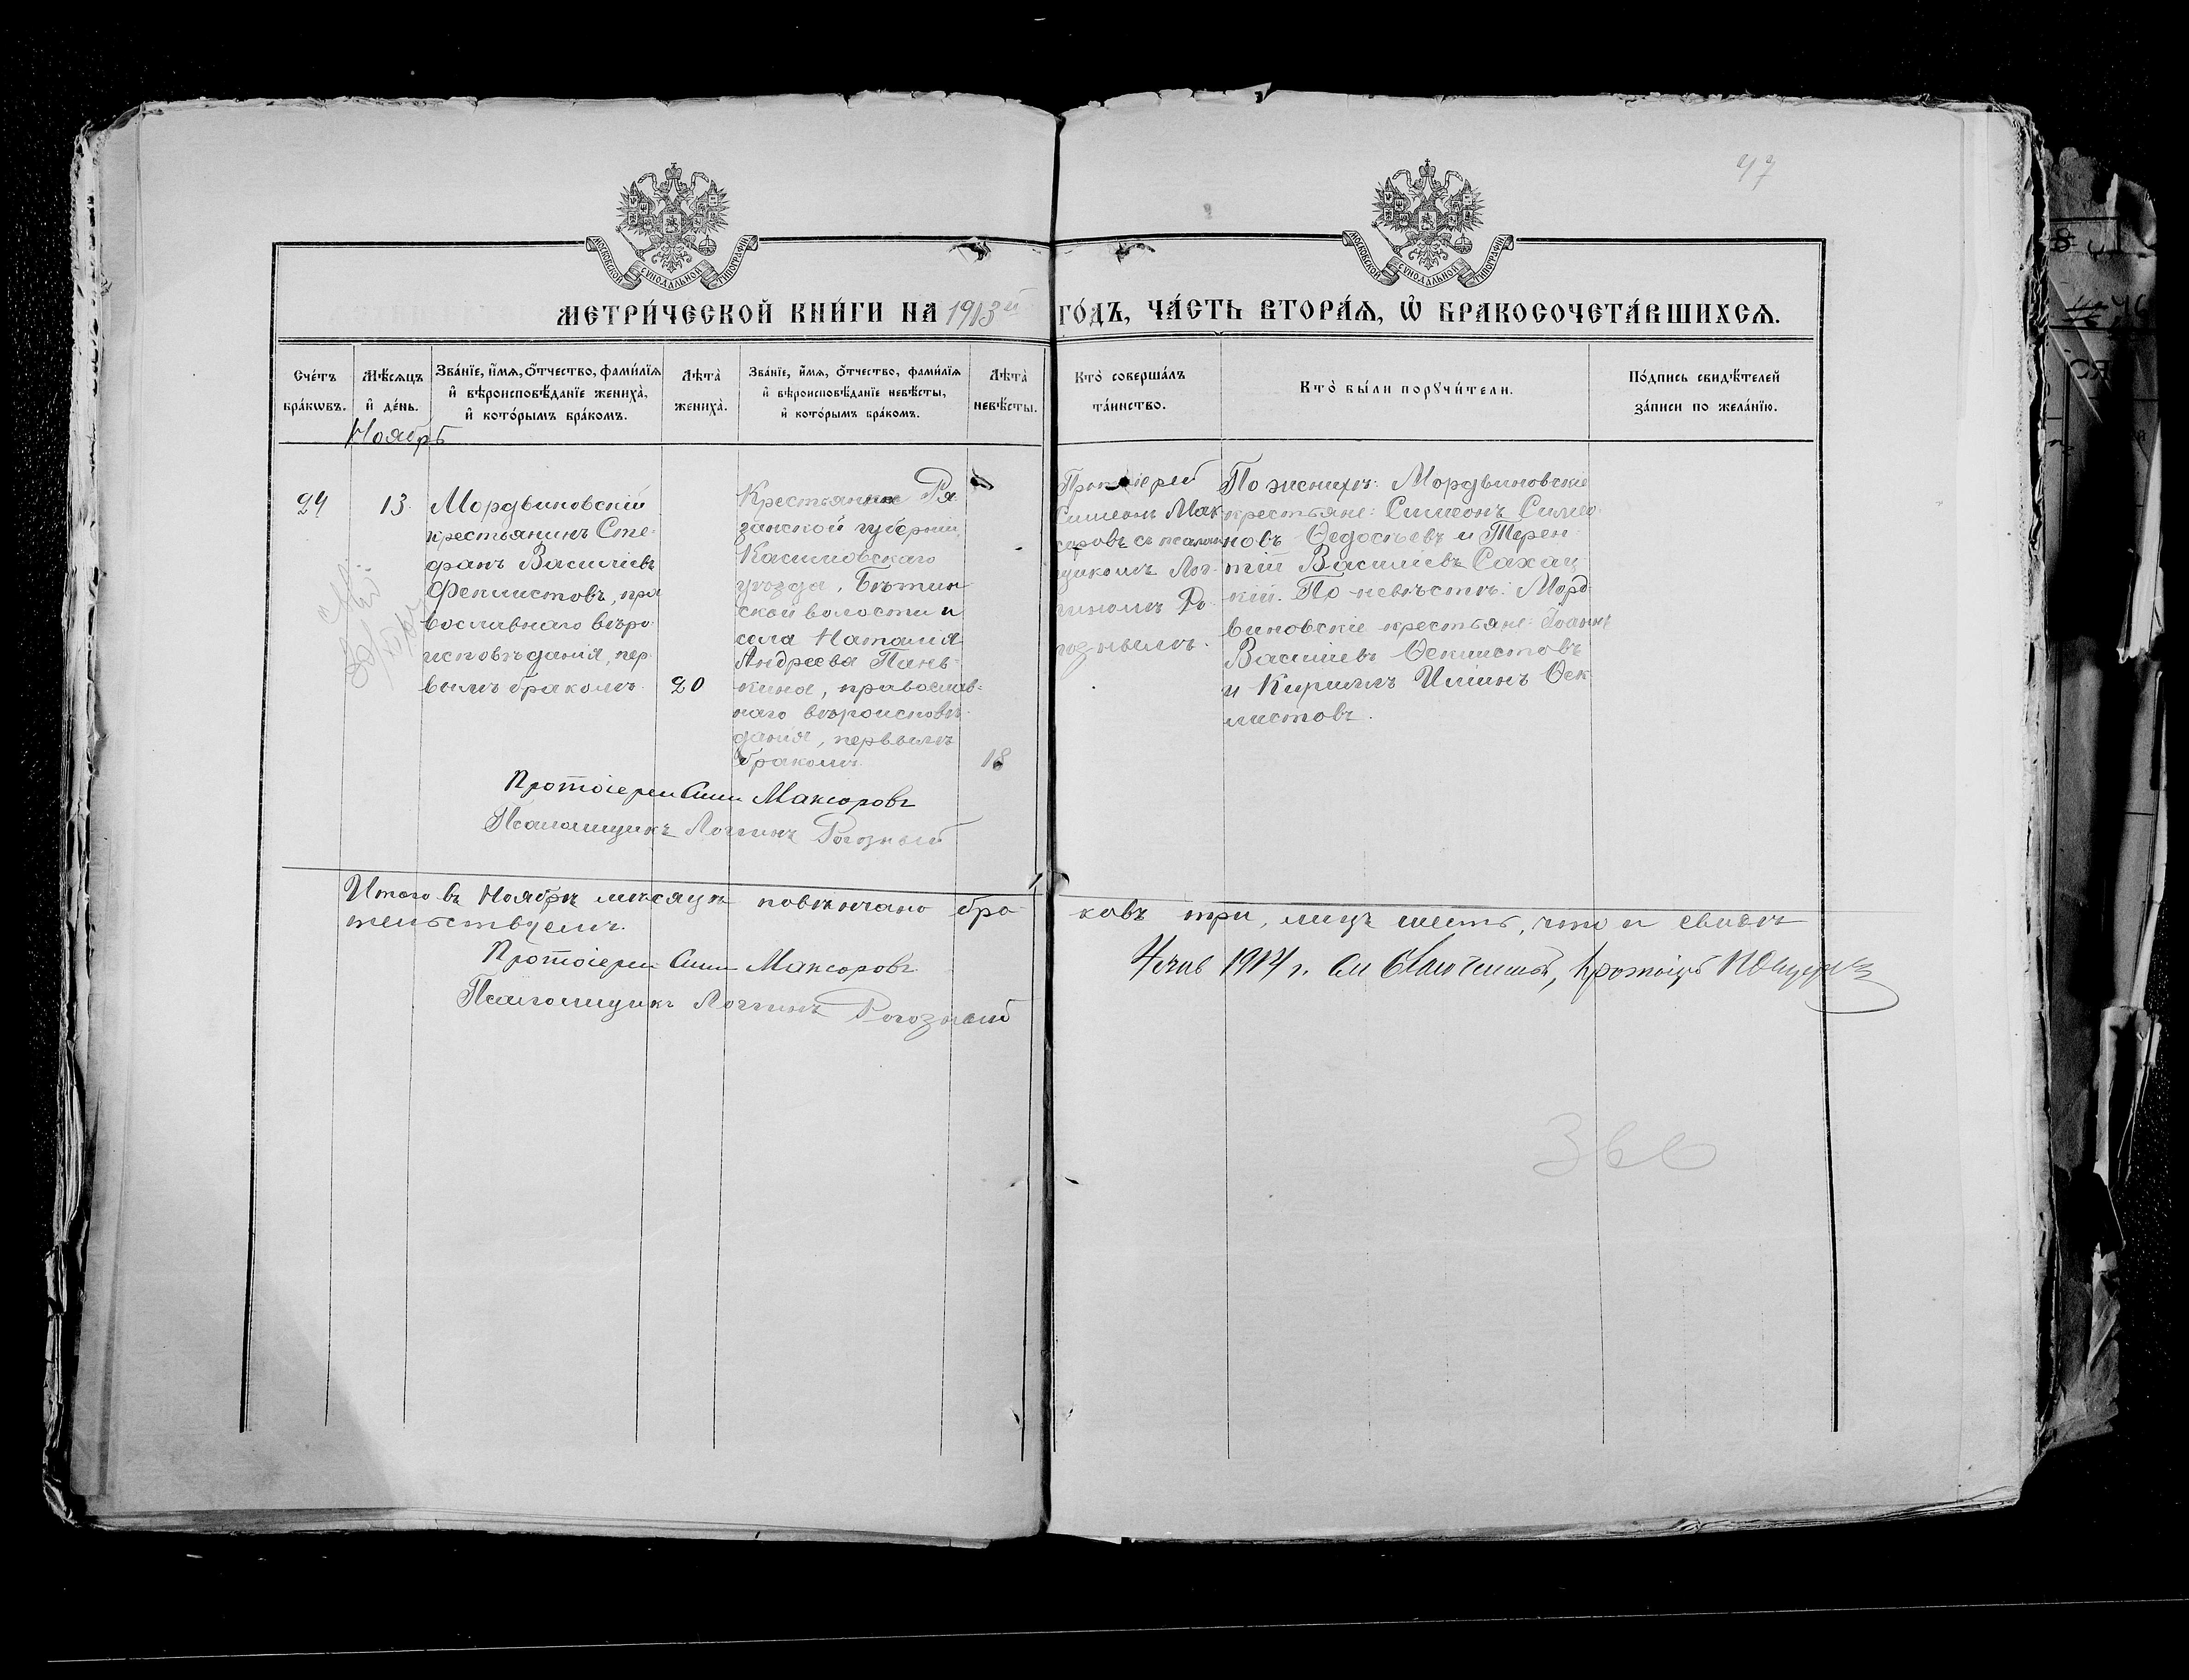 47
МОСКОВСКОЙ СУНОДАЛЬНОЙ ТИПОГРАФІИ
МОСКОВСКОЙ СУНОДАЛЬНОЙ ТИПОГРАФІИ
МЕТРИ́ЧЕСКОЙ КНИ́ГИ НА 1913й ГО́ДЪ, ЧА́СТЬ ВТОРА́Ѧ, Ѽ БРАКОСОЧЕТА́ВШИХСѦ.
Сче́тъ
бра́кѡвъ.
Мѣ́сѧцъ
и҆ де́нь.
Зва́нїе, и҆́мѧ, ѻ҆́тчество, фами́лїѧ
и҆ вѣроисповѣ́данїе жениха̀,
и҆ кото́рымъ бра́комъ.
Лѣта̀
жениха̀.
Зва́нїе, и҆́мѧ, ѻ҆́тчество, фами́лїѧ
и҆ вѣроисповѣ́данїе невѣ́сты,
и҆ кото́рымъ бра́комъ.
Лѣта̀
невѣ́сты.
Кто̀ соверша́лъ
та́инство.
Кто̀ бы́ли порꙋчи́тели.
По́дпись свидѣ́телей
за́писи по жела́нїю.
Ноябрь
24
13.
Мордвиновскій
крестьянинъ Сте-
фанъ Василіевъ
Феклистовъ, пра
вославнаго вѣро
исповѣданія, пер-
вымъ бракомъ.
20
Крестьянка Ря-
занской губерніи,
Касимовскаго
уѣзда, Бѣтин
ской волости и
села Наталія
Андреева Пань-
кина, православ-
наго вѣроисповѣ-
данія, первымъ
бракомъ.
18
Протоіерей
Симеонъ Мак-
соровъ съ псалом
щикомъ Лог-
гиномъ Ро-
гознымъ.
По женихѣ: Мордвиновскіе
крестьяне: Симеонъ Симео-
новъ Ѳедосѣевъ и Терен-
тій Василіевъ Сахац-
кій. По невѣстѣ: Морд-
виновскіе крестьяне: Іоаннъ
Василіевъ Ѳеклистовъ
и Кириллъ Иліинъ Ѳек
листовъ.
Протоіерей Сим Максоровъ
Псаломщикъ Логгинъ Рогозный
Итого въ Ноябрѣ мѣсяцѣ повѣнчано бра- ковъ три, лицъ шесть, что и свидѣ-
тельствуемъ.
Протоіерей Сим Максоровъ
Псаломщикъ Логгинъ Рогозный
1914 г.